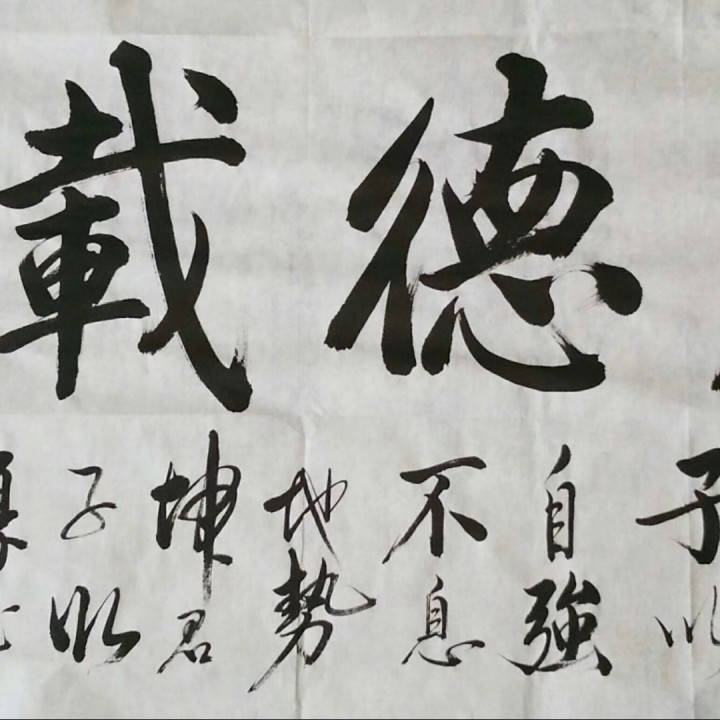 德載
子以
自強
不息
地勢
坤君
子以
厚